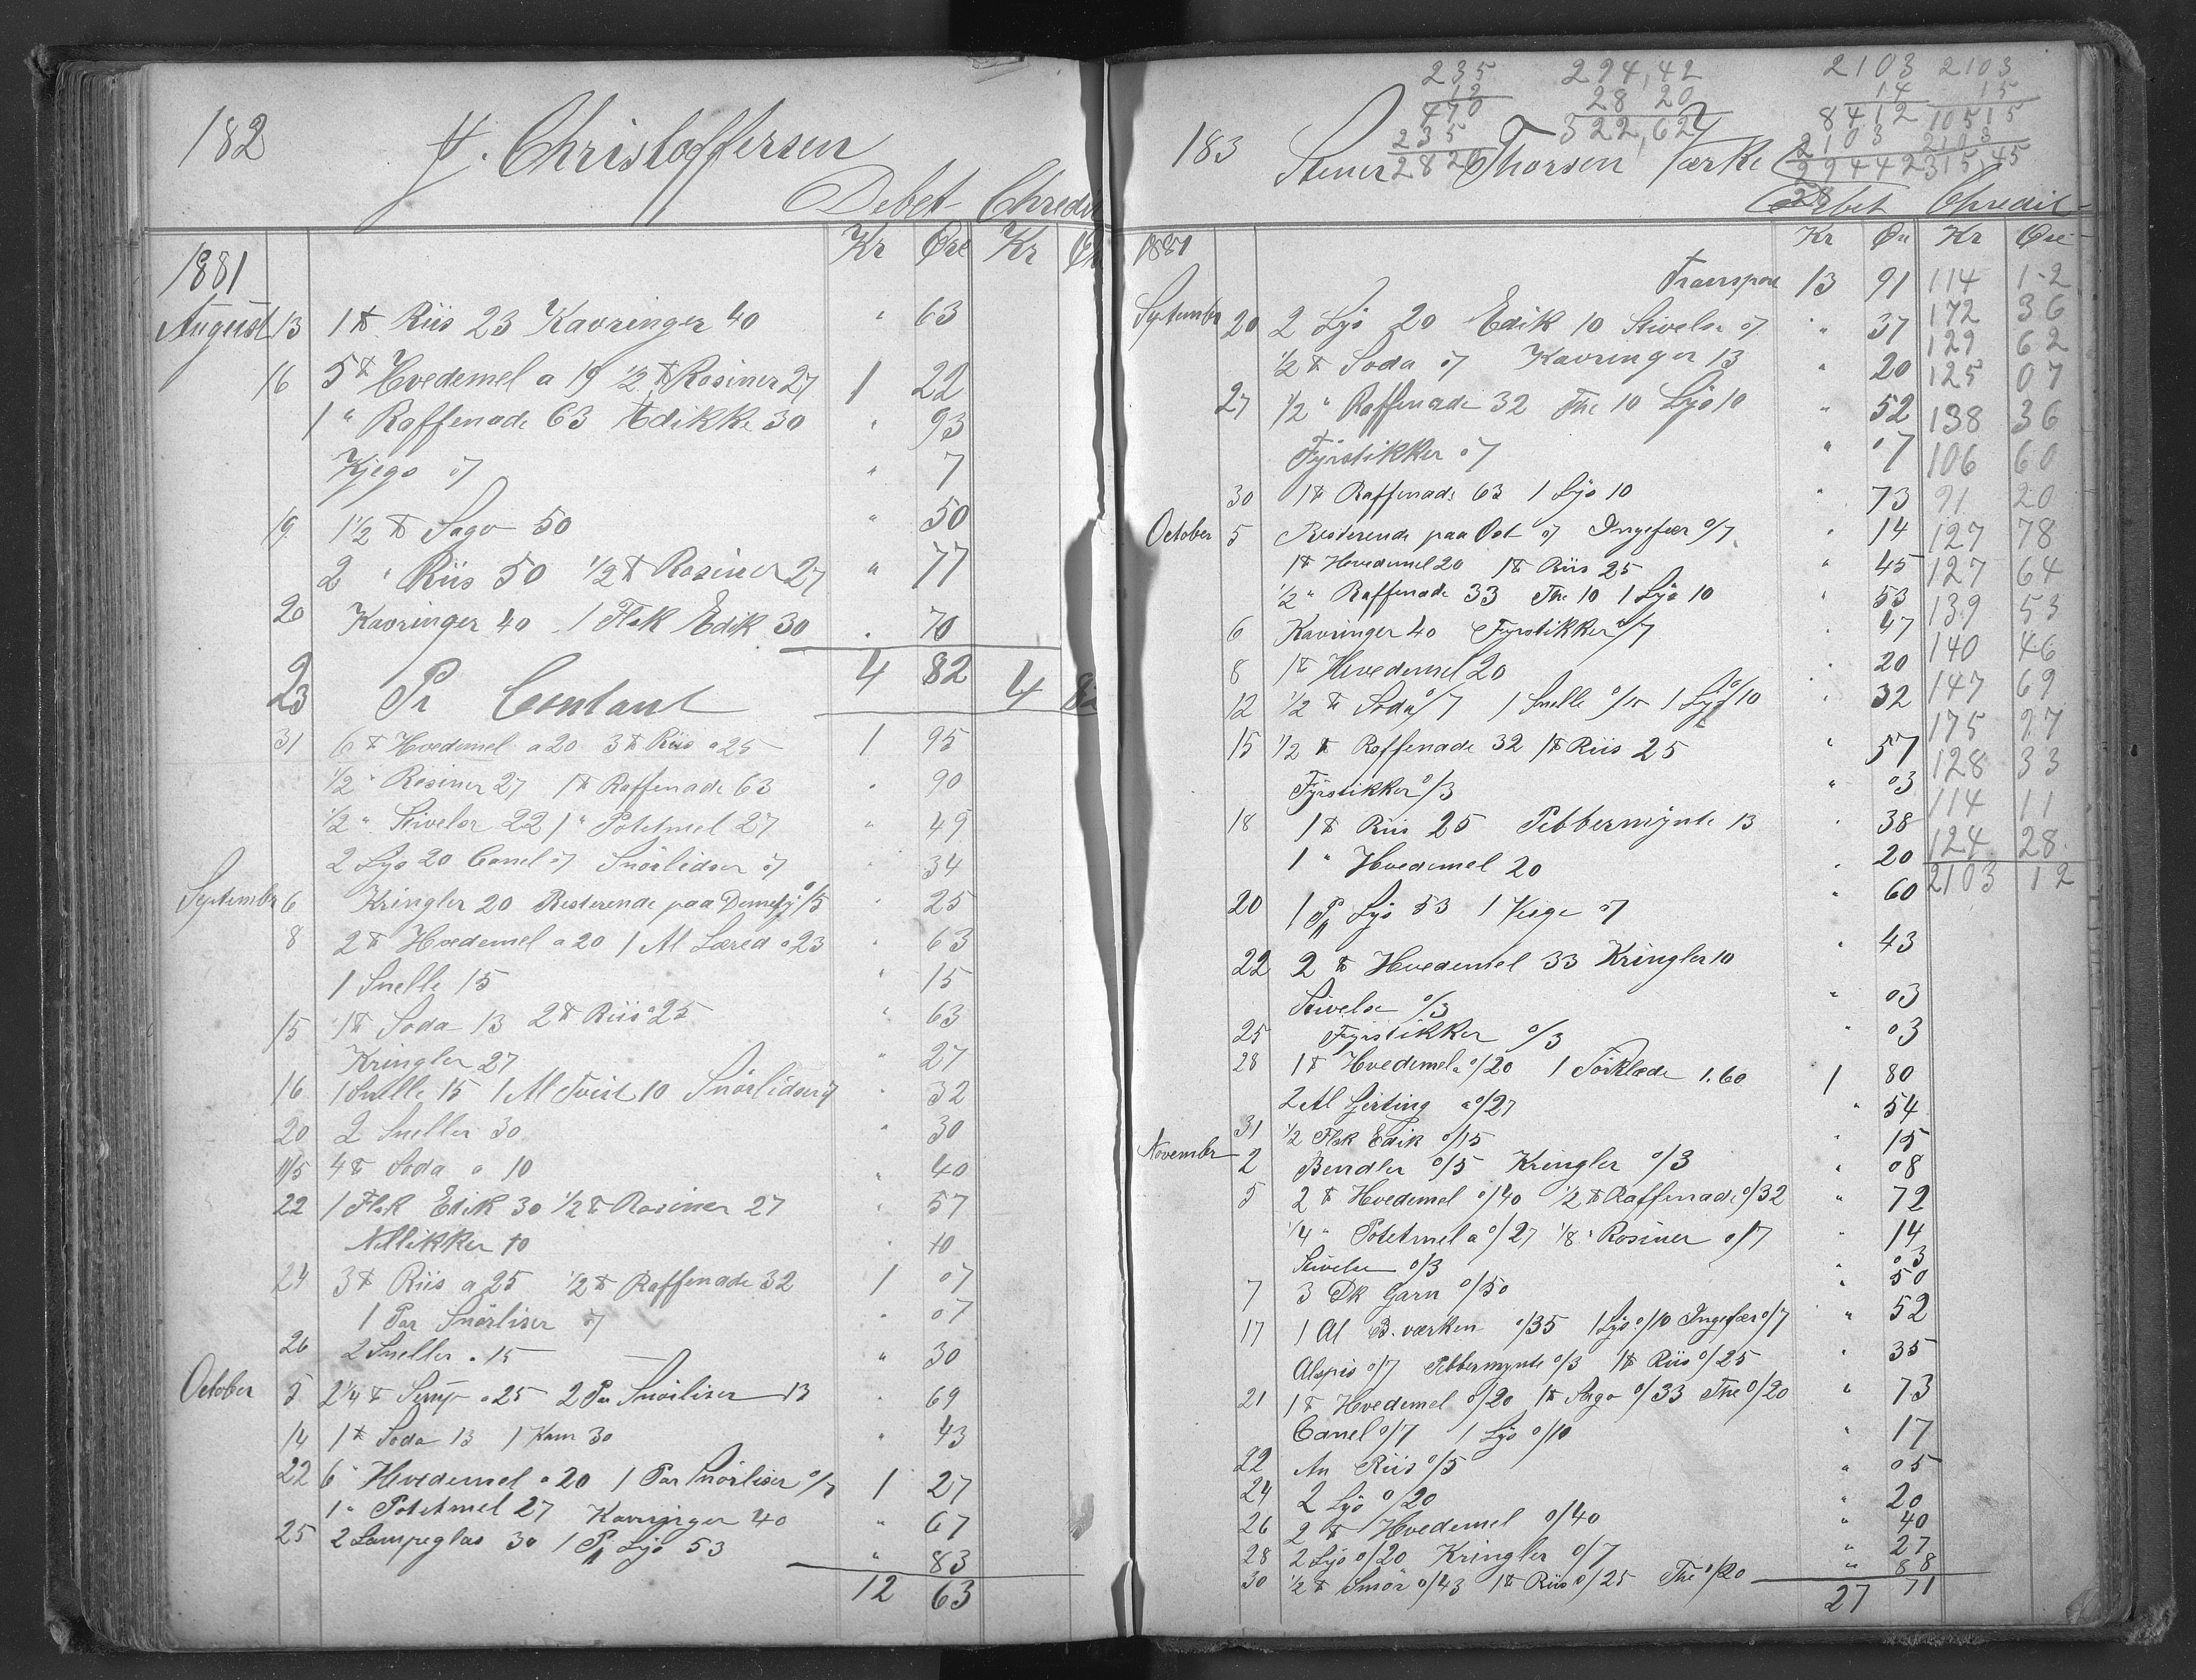 182
J. Christoffersen
Debet Chredit
Kr Øre Kr Ør
1881
August 13 1 ℔ Riis 23 Kavringer 40 " 63
16 5 ℔ Hvedemel a 19 1/2 ℔ Rosiner 27 1 22
1 " Raffenade 63 Edikke 30 " 93
Kjegs 07 " 7
19 1 1/2 ℔ Sago 50 " 50
2 " Riis 50 1/2 ℔ Rosiner 27 " 77
20 Kavringer 40 1 Flsk Edik 30 " 70
4 82
23 Pr Contant 4 82
31 6 ℔ Hvedemel a 20 3 ℔ Riis a 25 1 95
1/2 " Rosiner 27 1 ℔ Raffenade 63 " 90
1/2 " Stivelse 22 1 " Potetmel 27 " 49
2 Lys 20 Canel 07 Snörlidser 07 " 34
Septembr 6 Kringler 20 Resterende paa 0/5 " 25
8 2 ℔ Hvedemel a 20 1 Al Læred a 23 " 63
1 Snelle 15 " 15
15 1 ℔ Soda 13 2 ℔ Riis a 25 " 63
Kringler 27 " 27
16 1 Snelle 15 1 Al Tvist 10 Snörlidser 07 " 32
20 2 Sneller 30 " 30
4 ℔ Soda a 10 " 40
22 1 Flsk Edik 30 1/2 ℔ Rosiner 27 " 57
Nellikker 10 " 10
24 3 ℔ Riis a 25 1/2 ℔ Raffenade 32 1 07
1 Par Snörliser 07 " 07
26 2 Sneller a 15 " 30
October 5 2 1/4 ℔ Sirup a 25 2 Par Snörliser 13 " 69
14 1 ℔ Soda 13 1 Kam 30 " 43
22 6 " Hvedemel a 20 1 Par Snörliser 0/7 1 27
1 " Potetmel 27 Kavringer 40 " 67
25 2 Lampeglas 30 1 Pk Lys 53 " 83
12 63
235 294,42 2103 2103
12 28 20 14 15
470 322,62 8412 10515
235 2103 2103
2820 29442 315,45
28
183 Stener Thorsen Tærke
Debet Chredit
Kr Øre Kr Øre
1881
Transport 13 91 114 12
Septembr 20 2 Lys 20 Edik 10 Stivelse 07 " 37 172 36
1/2 ℔ Soda 07 Kavringer 13 " 20 129 62
27 1/2 " Raffenade 32 The 10 Lys 10 " 52 125 07
Fyrstikker 07 " 07 138 36
30 1 ℔ Raffenade 63 1 Lys 10 " 73 106 60
October 5 Resterende paa Ost 07 Ingefær 0/7 " 14 91 20
1 ℔ Hvedemel 20 1 ℔ Riis 25 " 45 127 78
1/2 " Raffenade 33 The 10 1 Lys 10 " 53 127 64
6 Kavringer 40 Fyrstikker 0/7 " 47 139 53
8 1 ℔ Hvedemel 20 " 20 140 46
12 1/2 ℔ Soda 0/7 1 Snelle 0/15 1 Lys 0/10 " 32 147 69
15 1/2 ℔ Raffenade 32 1 ℔ Riis 25 " 57 175 27
Fyrstikker 0/3 " 03 128 33
18 1 ℔ Riis 25 Pebbermynte 13 " 38 114 11
1 " Hvedemel 20 " 20 124 28
20 1 Pk Lys 53 1 Vege 07 " 60 2103 12
22 2 ℔ Hvedemel 33 Kringler 10 " 43
Stivelse 0/3 " 03
25 Fyrstikker 0/3 " 03
28 1 ℔ Hvedemel a 0/20 1 Törklæde 1.60 1 80
2 Al Girting a 0/27 " 54
31 1/2 Flsk Edik 0/15 " 15
Novembr 2 Bendler 0/5 Kringler 0/3 " 08
5 2 ℔ Hvedemel 0/40 1/2 ℔ Raffenade 0/32 " 72
1/4 " Potetmel a 0/27 1/8 " Rosiner 0/7 " 14
Stivelse 0/3 " 03
7 3 Dk Garn 0/50 " 50
17 1 Al B.værken 0/35 1 Lys 0/10 Ingefær 0/7 " 52
Alspis 0/7 Pebbermynte 0/3 1 ℔ Riis 0/25 " 35
21 1 ℔ Hvedemel 0/20 1 ℔ Sago 0/33 The 0/20 " 73
Canel 0/7 1 Lys 0/10 " 17
22 An Riis 0/5 " 05
24 2 Lys 0/20 " 20
26 2 ℔ Hvedemel 0/40 " 40
28 2 Lys 0/20 Kringler 0/7 " 27
30 1/2 ℔ Smör 0/43 1 ℔ Riis 0/25 The 0/20 " 88
27 71